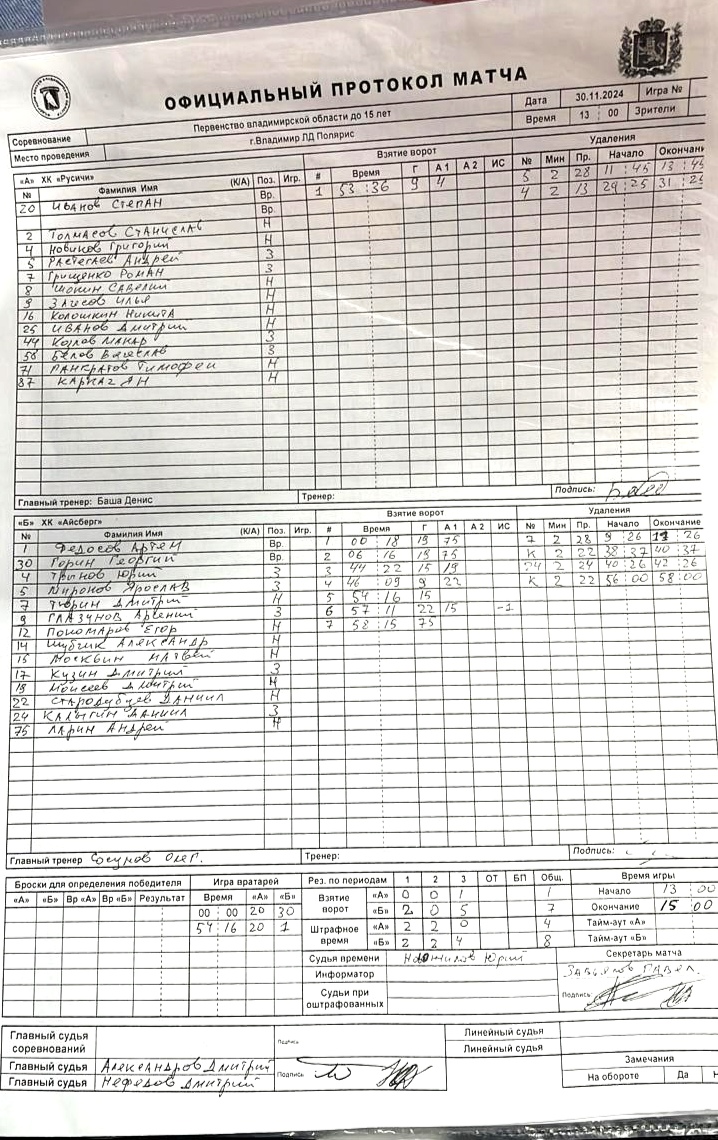 ОФИЦИАЛЬНЫЙ ПРОТОКОЛ МАТЧА
Соревнование Первенство владимирской области до 15 лет Дата 30.11.2024 Игра №
Место проведения г.Владимир ЛД Полярис Время 13 : 00 Зрители
«А» ХК «Русичи» Взятие ворот Удаления
№ Фамилия Имя (К/А) Поз. Игр. # Время Г А 1 А 2 ИС № Мин Пр. Начало Окончани
20 Иванов Степан Вр. 1 53 : 36 9 4 5 2 28 11 : 45 13 : 45
Вр. 4 2 13 29 : 25 31 : 25
2 Толмасов Станислав Н
4 Новиков Григорий Н
5 Растегаев Андрей З
7 Грищенко Роман З
8 Шокин Савелий Н
9 Илья Н
16 Колошкин Никита Н
25 Иванов Дмитрий Н
44 Козлов Макар З
58 Белов Вячеслав З
71 Панкратов Тимофей Н
87 Ян Н
Главный тренер: Баша Денис Тренер: Подпись:
«Б» ХК «Айсберг» Взятие ворот Удаления
№ Фамилия Имя (К/А) Поз. Игр. # Время Г А 1 А 2 ИС № Мин Пр. Начало Окончание
1 Федосов Артем Вр. 1 00 : 18 19 75 7 2 28 9 : 26 11 : 26
30 Горин Георгий Вр. 2 06 : 16 19 75 К 2 22 38 : 37 40 : 37
4 Юрий З 3 44 : 22 15 19 24 2 24 40 : 26 42 : 26
5 Миронов Ярослав З 4 46 : 09 9 22 К 2 22 56 : 00 58 : 00
7 Тюрин Дмитрий Н 5 54 : 16 15
9 Глазунов Арсений З 6 57 : 11 22 15 -1
12 Пономаров Егор Н 7 58 : 15 75
14 Шубчик Александр Н
15 Москвин Матвей Н
17 Кузин Дмитрий З
19 Моисеев Дмитрий Н
22 Стародубцев Даниил Н
24 Калыгин Даниил З
75 Ларин Андрей Н
Главный тренер Сосунов Олег. Тренер: Подпись:
Броски для определения победителя Игра вратарей Рез. по периодам 1 2 3 ОТ БП Общ. Время игры
«А» «Б» Вр «А» Вр «Б» Результат Время «А» «Б» Взятие ворот «А» 0 0 1 1 Начало 13 00
00 : 00 20 30 «Б» 2 0 5 7 Окончание 15 00
54 16 20 1 Штрафное время «А» 2 2 0 4 Тайм-аут «А»
«Б» 2 2 4 8 Тайм-аут «Б»
Судья времени Юрий Секретарь матча
Информатор Павел.
Судьи при оштрафованных Подпись
Главный судья соревнований Подпись Линейный судья
Линейный судья
Главный судья Александров Дмитрий Подпись Замечания
Главный судья Нефедов Дмитрий На обороте Да